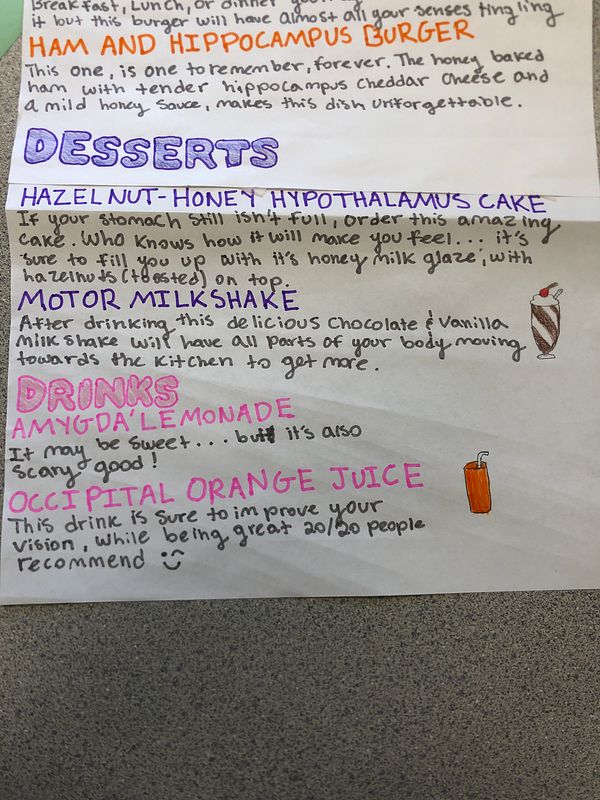 Breakfast, Lunch, or dinner
it but this burger will have almost all your senses tingling
HAM AND HIPPOCAMPUS BURGER
This one, is one to remember, forever. The honey baked
ham with tender hippocampus cheddar cheese and
a mild honey sauce, makes this dish unforgettable.
DESSERTS
HAZELNUT-HONEY HYPOTHALAMUS CAKE
If your stomach still isn't full, order this amazing
cake. Who knows how it will make you feel... it's
sure to fill you up with it's honey milk glaze, with
hazelnuts (toasted) on top.
MOTOR MILKSHAKE
After drinking this delicious chocolate & vanilla
milkshake will have all parts of your body moving
towards the kitchen to get more.
DRINKS
AMYGDA'LEMONADE
It may be sweet... but it's also
scary good!
OCCIPITAL ORANGE JUICE
This drink is sure to improve your
vision, while being great 20/20 people
recommend